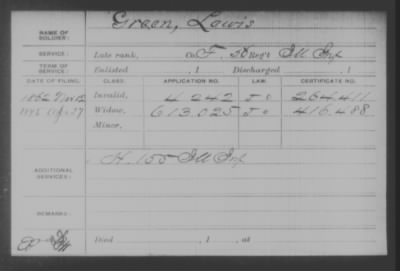 Green, Lewis
NAME OF SOLDIER:
SERVICE: Late rank, Co. F, 38 Reg't Ill Inf
TERM OF SERVICE: Enlisted , 1 Discharged , 1
DATE OF FILING. CLASS. APPLICATION NO. LAW. CERTIFICATE NO.
1862 Nov 12 Invalid, 4 242 264,411
1895 Widow, 613,025 416,488
Minor,
ADDITIONAL SERVICES: H. 155 Ill Inf
REMARKS:
Died , 1 , at